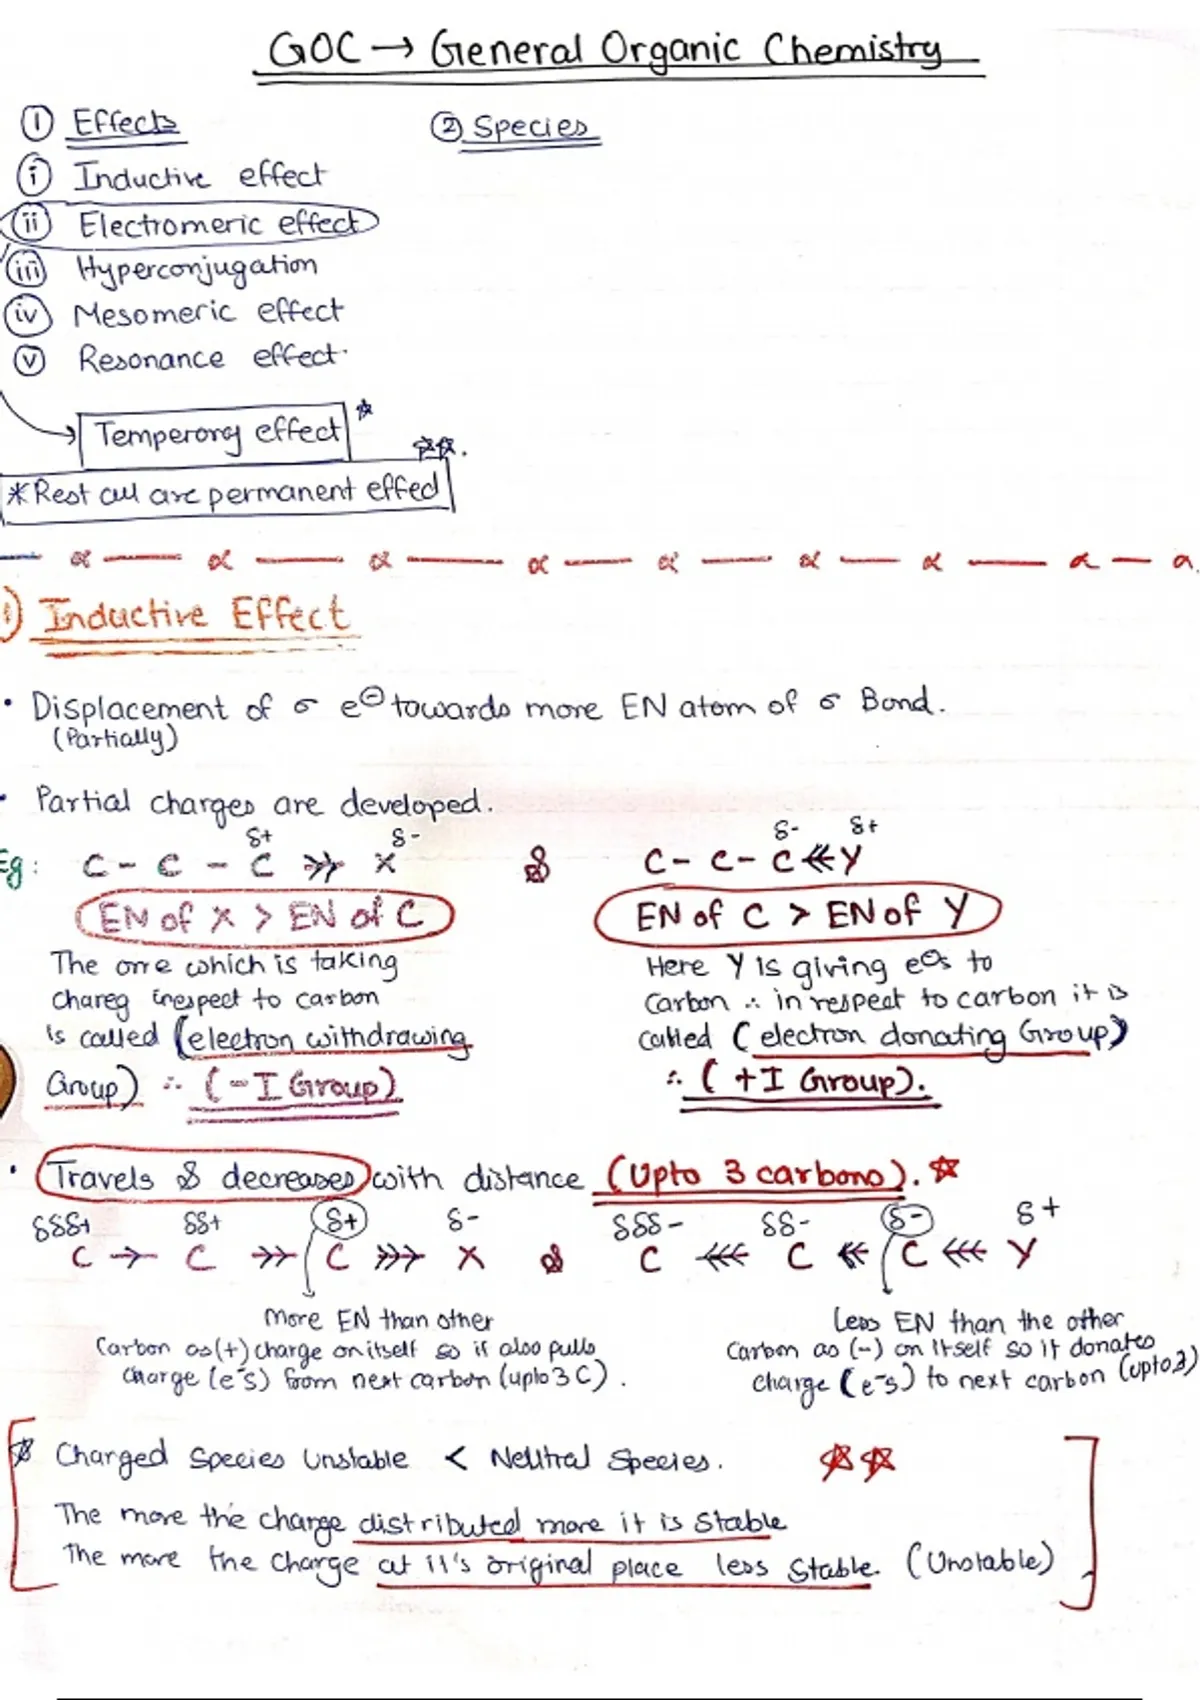 GOC → General Organic Chemistry
① Effects
② Species
ⓘ Inductive effect
ⓘⓘ Electromeric effect
ⓘⓘⓘ Hyperconjugation
ⓘⓥ Mesomeric effect
ⓥ Resonance effect.
Temperory effect ☆
☆☆.
*Rest all are permanent effect
— α — α — α — α — α — α — α — α — α
1) Inductive Effect
• Displacement of σ e⊖ towards more EN atom of σ Bond.
(Partially)
• Partial charges are developed.
δ+ δ- δ- δ+
Eg: C - C - C >> X & C - C - C << Y
EN of X > EN of C EN of C > EN of Y
The one which is taking
chareg inrespect to carbon
is called (electron withdrawing
Group) ∴ (-I Group)
Here Y is giving e⊖s to
Carbon ∴ in respect to carbon it is
called (electron donating Group)
∴ (+I Group).
• Travels & decreases with distance (Upto 3 carbons). ☆
δδδ+ δδ+ δ+ δ- δδδ- δδ- δ- δ+
C → C >> C >>> X & C <<< C << C <<< Y
More EN than other
Carbon as(+) charge on itself so it also pulls
Charge (e-s) from next carbon (upto 3 C).
Less EN than the other
Carbon as (-) on itself so it donates
charge (e-s) to next carbon (upto3)
Charged Species Unstable < Neutral Species. ☆☆
The more the charge distributed more it is Stable
The more the Charge at it's original place less Stable. (Unstable)